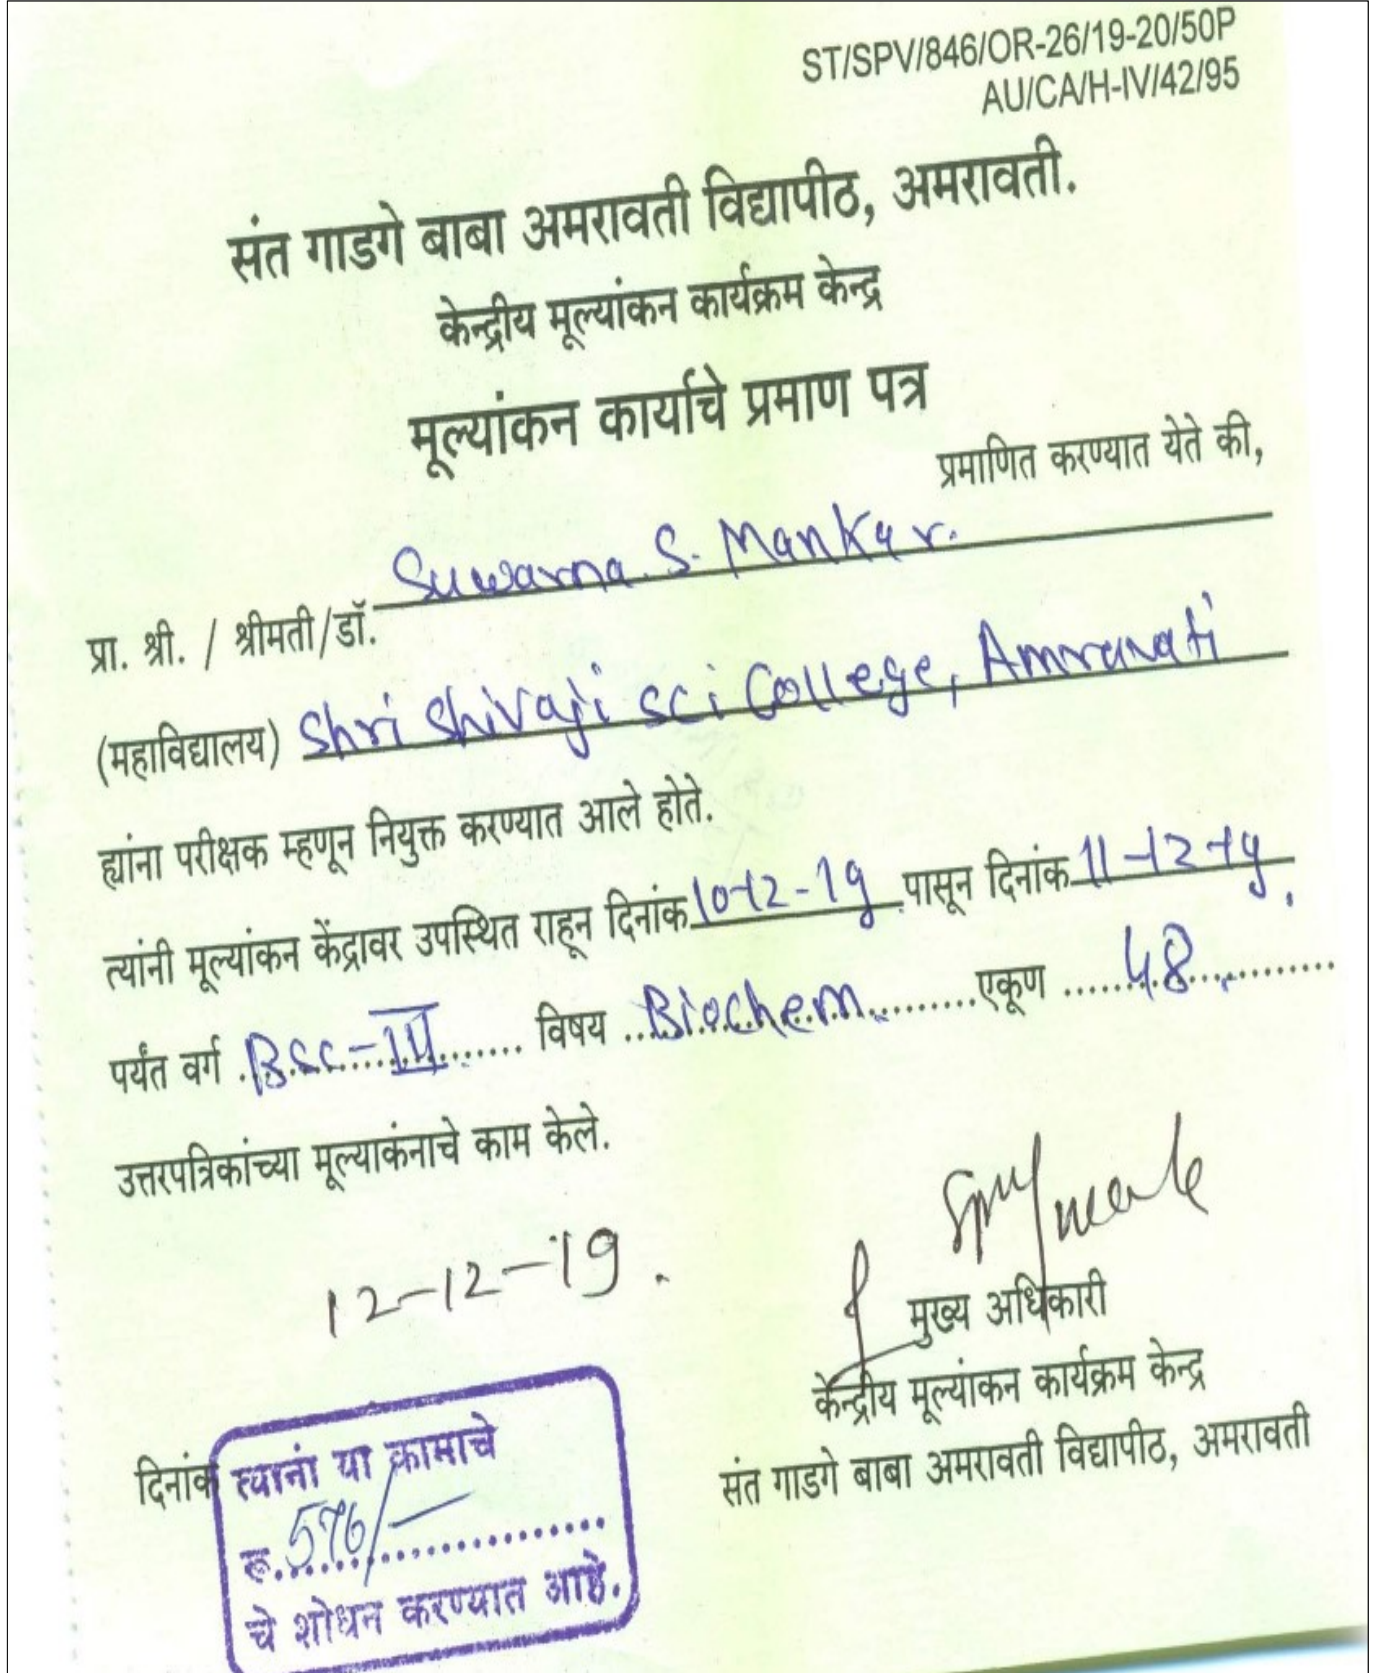 ST/SPV/846/OR-26/19-20/50P
AU/CA/H-IV/42/95
संत गाडगे बाबा अमरावती विद्यापीठ, अमरावती.
केन्द्रीय मूल्यांकन कार्यक्रम केन्द्र
मूल्यांकन कार्याचे प्रमाण पत्र
प्रमाणित करण्यात येते की,
प्रा. श्री. / श्रीमती/डॉ. Suwarna S. Mankar.
(महाविद्यालय) Shri Shivaji sci College, Amravati
ह्यांना परीक्षक म्हणून नियुक्त करण्यात आले होते.
त्यांनी मूल्यांकन केंद्रावर उपस्थित राहून दिनांक 10-12-19 पासून दिनांक 11-12-19.
पर्यंत वर्ग B.Sc-III विषय Biochem एकूण 48
उत्तरपत्रिकांच्या मूल्याकंनाचे काम केले.
12-12-19.
मुख्य अधिकारी
केन्द्रीय मूल्यांकन कार्यक्रम केन्द्र
संत गाडगे बाबा अमरावती विद्यापीठ, अमरावती
दिनांक
त्यानां या कामाचे
रू. 576/-
चे शोधन करण्यात आहे.